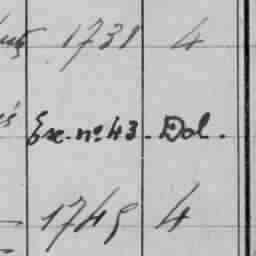 1731 4
Exc. nº 43. Dol.
1745 4